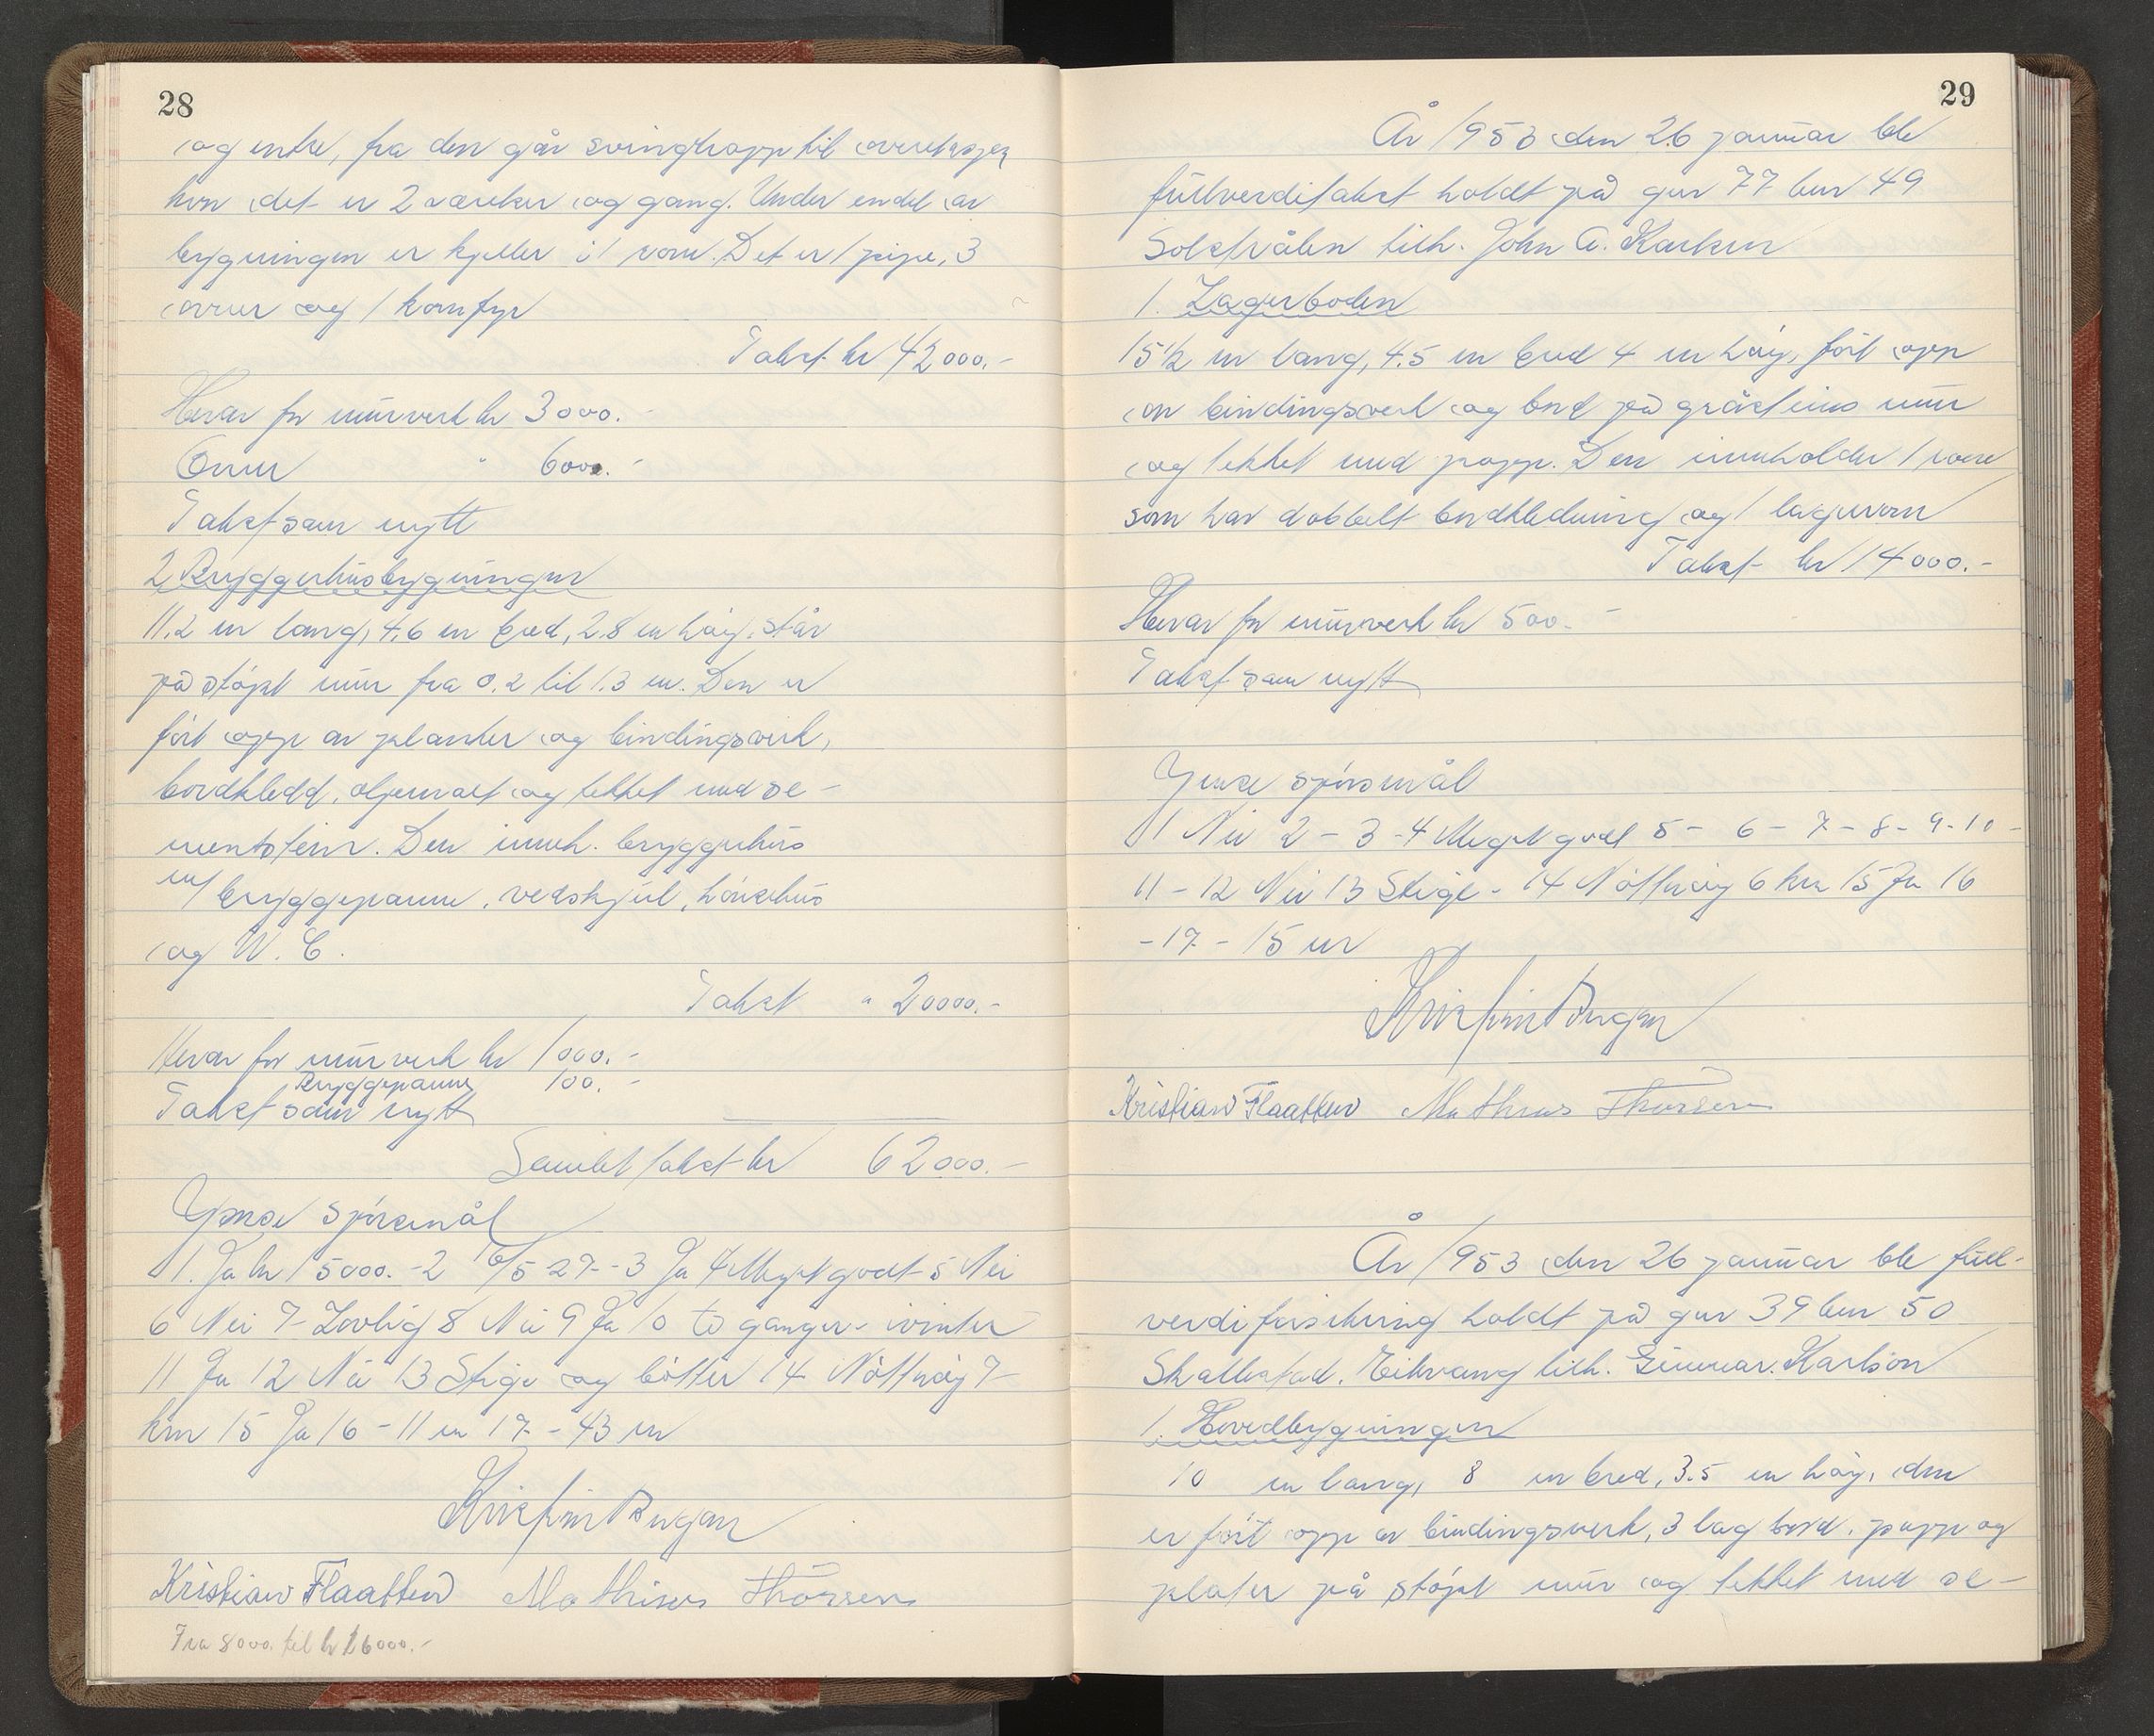 28
og entre, fra den går svingtrapp til overetasjen
hvor det er 2 værelser og gang. Under endel av
bygningen er kjeller i 1 rom. Det er 1 pipe, 3
ovner og 1 komfyr
Takst kr 42000.-
Herav for murverk kr 3000.-
Ovner " 600.-
Takst som nytt
2 Bryggerhusbygningen
11.2 m lang, 4.6 m bred, 2.8 m høy, står
på støpt mur fra 0.2 til 1.3 m. Den er
ført opp av planker og bindingsverk,
bordkledd, oljemalt og tekket med se-
mentstein. Den inneh. bryggerhus
m/ bryggepanne, vedskjul, hönsehus
og W.C.
Takst " 20000.-
Herav for murverk kr 1000.-
Bryggepanne 100.-
Takst som nytt
Samlet takst kr 62000.-
Ymse spörsmål
1. Ja kr 15000.- 2 16/5-27- 3 Ja 4 Meget godt 5 Nei
6 Nei 7 Lovlig 8 Nei 9 Ja 10 to ganger i vinter
11 Ja 12 Nei 13 Stige og bötter 14 Nötteröy 7
km 15 Ja 16 - 11 m 17 - 43 m
Kristian Flaatten Mathias Thorsen
Fra 8000. til kr 16000.-
29
År 1953 den 26 januar ble
fullverditakst holdt på gnr 77 bnr 49
Solstrålen tilh. John A. Karlsen
1. Lagerboden
15½ m lang, 4.5 m bred 4 m høy, ført opp
av bindingsverk og bord på gråsteins mur
og tekket med papp. Den inneholder 1 værelse
som har dobbelt bordkledning og 1 lagerrom
Takst kr 14000.-
Herav for murverk kr 500.-
Takst som nytt
Ymse spörsmål
1 Nei 2 - 3 - 4 Meget godt 5 - 6 - 7 - 8 - 9 - 10 -
11 - 12 Nei 13 Stige - 14 Nötteröy 6 km 15 Ja 16
- 17 - 15 m
Kristian Flaatten Mathias Thorsen
År 1953 den 26 januar ble full-
verdiforsikring holdt på gnr 39 bnr 50
Skallestad, Eikvang tilh. Gunnar Karlson
1. Hovedbygningen
10 m lang, 8 m bred, 3.5 m høy, den
er ført opp av bindingsverk, 3 lag bord, papp og
plater på støpt mur og tekket med se-